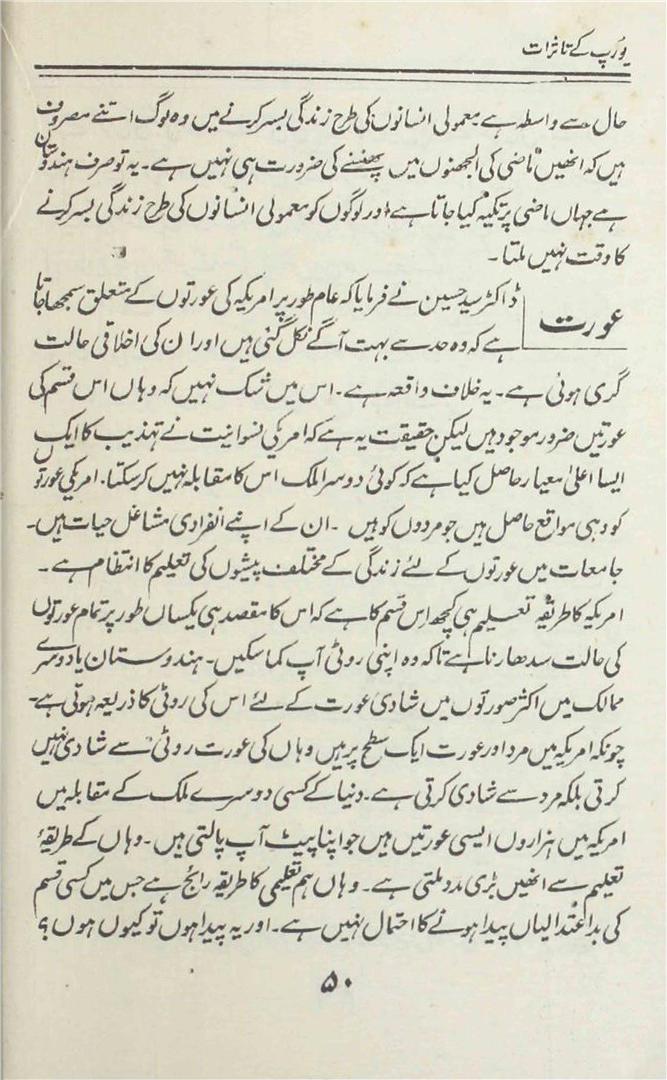 یورپ کے تاثرات
حال سے واسطہ ہے معمولی انسانوں کی طرح زندگی بسر کرنے میں وہ لوگ اتنے مصروف
ہیں کہ انھیں ماضی کی الجھنوں میں پھنسنے کی ضرورت ہی نہیں ہے۔ یہ تو صرف ہندوستان
ہے جہاں ماضی پر تکیہ کیا جاتا ہے اور لوگوں کو معمولی انسانوں کی طرح زندگی بسر کرنے
کا وقت نہیں ملتا۔
عورت
ڈاکٹر سید حسین نے فرمایا کہ عام طور پر امریکہ کی عورتوں کے متعلق سمجھا جاتا
ہے کہ وہ حد سے بہت آگے نکل گئی ہیں اور ان کی اخلاقی حالت
گری ہوئی ہے۔ یہ خلاف واقعہ ہے۔ اس میں شک نہیں کہ وہاں اس قسم کی
عورتیں ضرور موجود ہیں لیکن حقیقت یہ ہے کہ امریکی نسوانیت نے تہذیب کا ایک
ایسا اعلیٰ معیار حاصل کیا ہے کہ کوئی دوسرا ملک اس کا مقابلہ نہیں کر سکتا۔ امریکی عورتوں
کو وہی مواقع حاصل ہیں جو مردوں کو ہیں ۔ ان کے اپنے انفرادی مشاغل حیات ہیں۔
جامعات میں عورتوں کے لئے زندگی کے مختلف پیشوں کی تعلیم کا انتظام ہے۔
امریکہ کا طریقہ تعلیم ہی کچھ اس قسم کا ہے کہ اس کا مقصد ہی یکساں طور پر تمام عورتوں
کی حالت سدھارنا ہے تاکہ وہ اپنی روٹی آپ کما سکیں۔ ہندوستان یا دوسرے
ممالک میں اکثر صورتوں میں شادی عورت کے لئے اس کی روٹی کا ذریعہ ہوتی ہے۔
چونکہ امریکہ میں مرد اور عورت ایک سطح پر ہیں وہاں کی عورت روٹی سے شادی نہیں
کرتی بلکہ مرد سے شادی کرتی ہے۔ دنیا کے کسی دوسرے ملک کے مقابلہ میں
امریکہ میں ہزاروں ایسی عورتیں ہیں جو اپنا پیٹ آپ پالتی ہیں۔ وہاں کے طریقۂ
تعلیم سے انھیں بڑی مدد ملتی ہے۔ وہاں ہم تعلیمی کا طریقہ رائج ہے جس میں کسی قسم
کی بداعتدالیاں پیدا ہونے کا احتمال نہیں ہے۔ اور یہ پیدا ہوں تو کیوں ہوں؟
۵۰